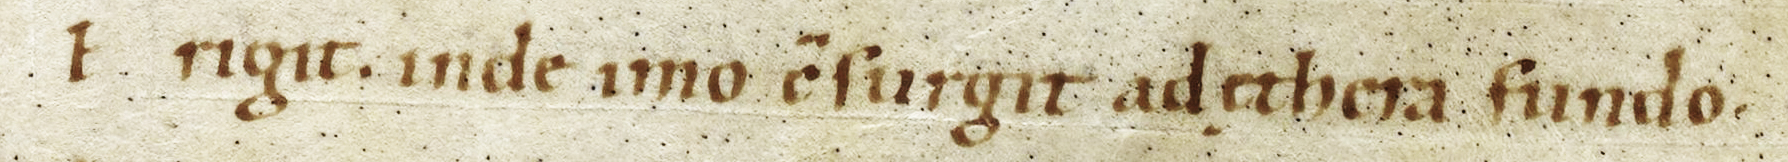 E rigit. inde imo c̄surgit ad ęthera fundo.